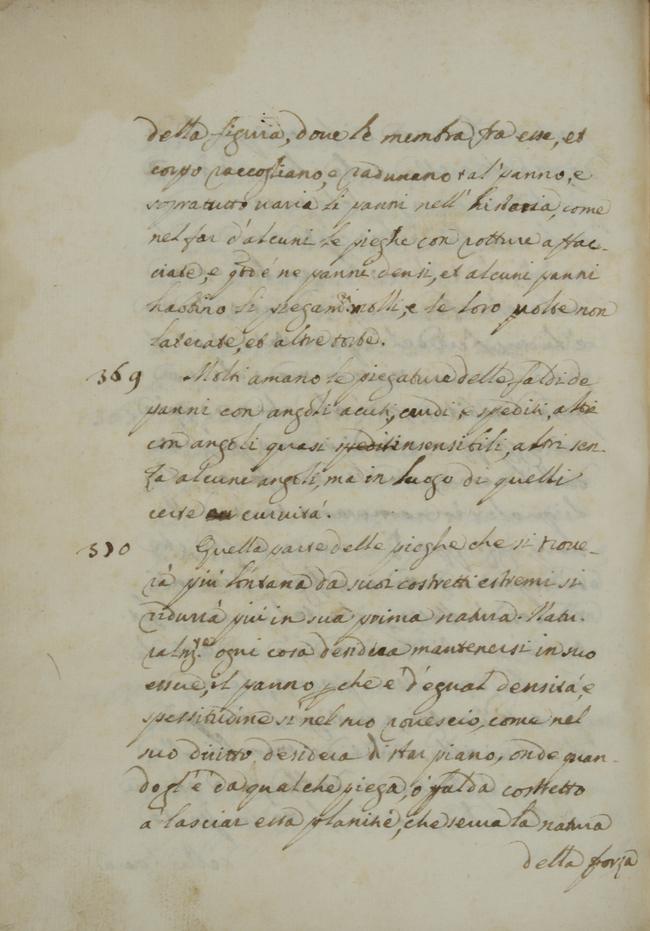 della figura, dove le membra fra esse, et
corpo raccogliano, e radunano tal' panno, e
sopratutto varia li panni nell' historia, come
nel far d'alcuni le pieghe con rotture affac-
ciate, e qto é ne panni densi, et alcuni panni
habbino li piegamti molli, e le loro volte non
laterate, et altre torte.
369 Molti amano le piegature delle falde de
panni con angoli acuti, crudi, e spediti, altri
con angoli quasi insensibili, altri sen-
za alcuni angoli, ma in luogo di quelli
certe curvitá.
370 Quella parte delle pieghe che si trove-
rà piú lontana da suoi costretti estremi si
ridurrà piú in sua prima natura. Natu-
ralmte ogni cosa desidera mantenersi in suo
essere, il panno pche é d'egual densitá, e
spessitudine sí nel suo rovescio, come nel
suo diritto desidera di star piano, onde quan-
do gl' é da qualche piega, ó falda costretto
á lasciar essa planitié, che serva la natura
della forza